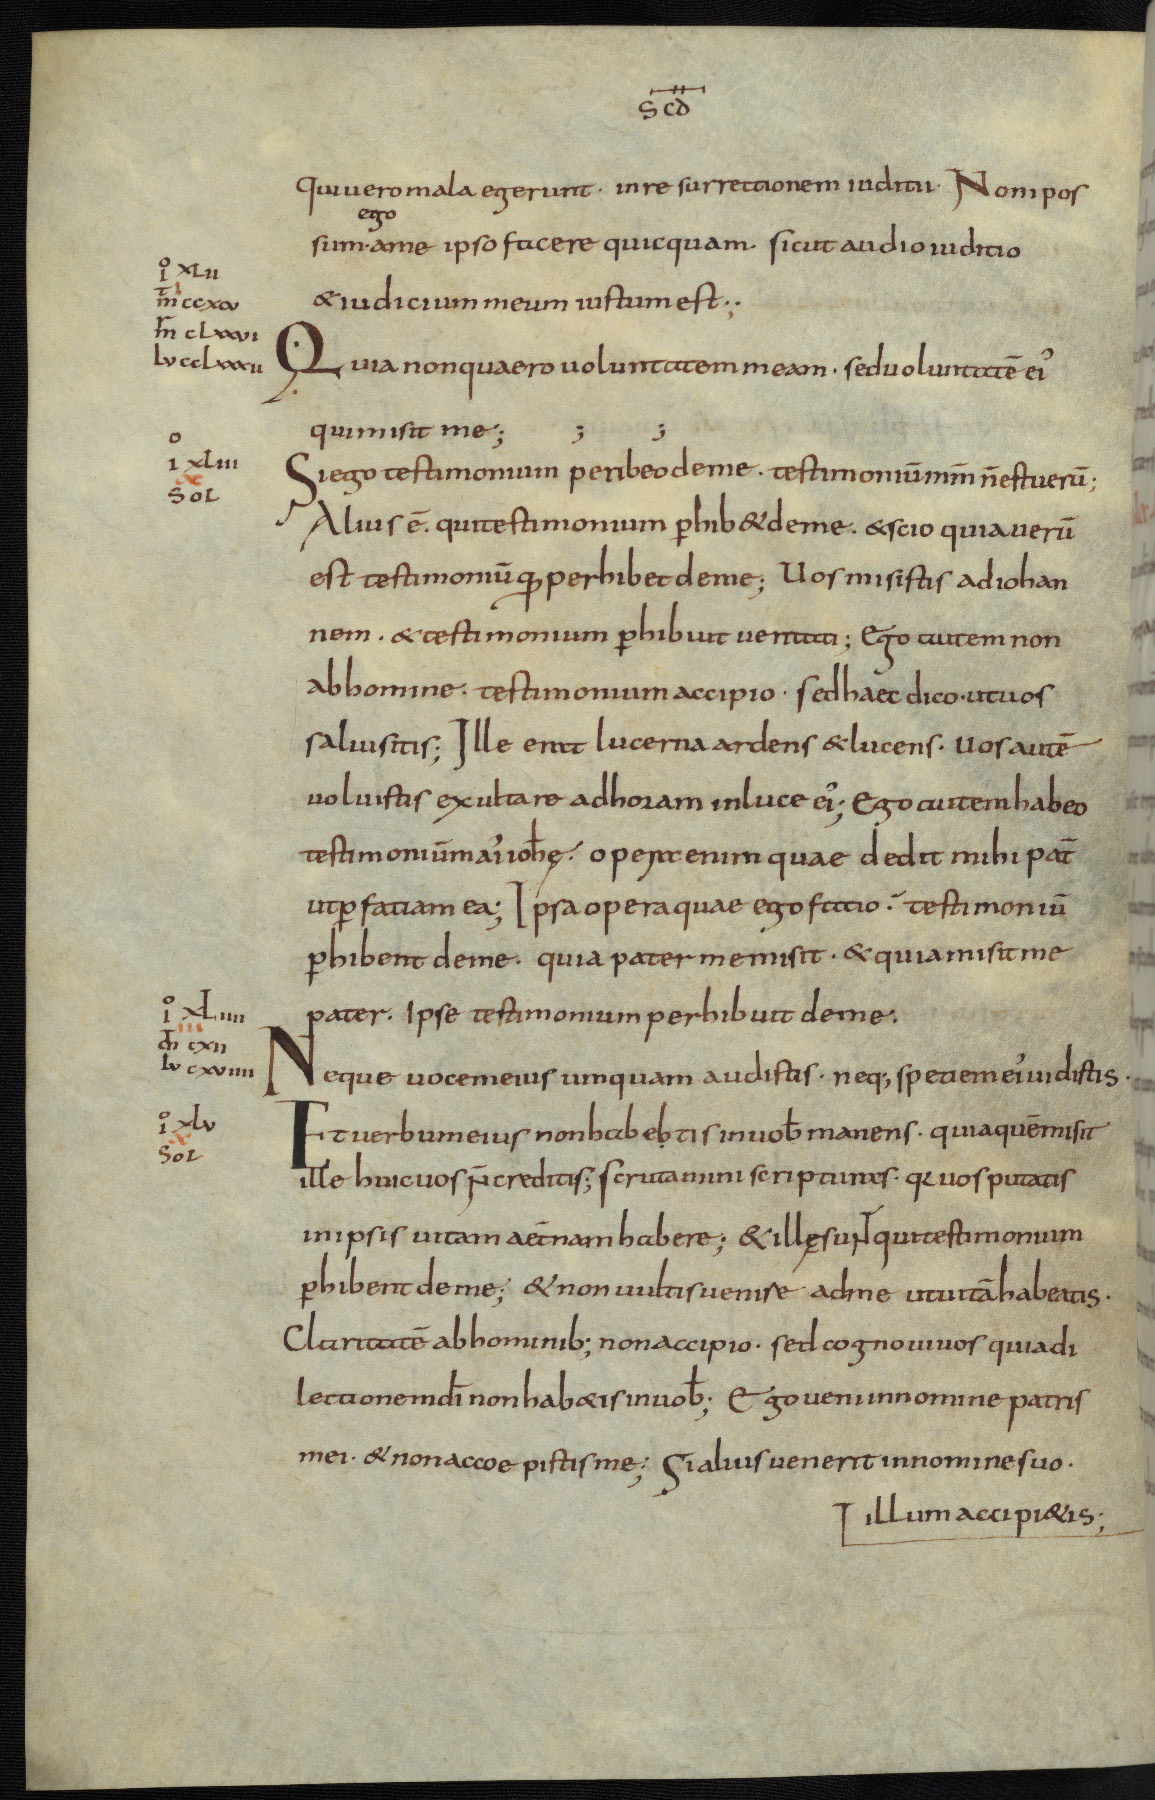 scd̄
qui uero mala egerunt · in resurrectionem iuditii · Non pos
ego
sum · a me ipso facere quicquam · sicut audio iuditio
& iudicium meum iustum est ·;
i̊ xlii
m̄ ccxcv
m̄r clxxvi
lv cclxxxii
Quia non quaero uoluntatem meam · sed uoluntatē ei᾿
qui misit me; ; ;
i̊ xliii
x
Sol
Si ego testimonium peribeo de me · testimoniū mm̄ n̄ est uerū;
Alius ē · qui testimonium p̄hib& de me · & scio quia uerū
est testimoniū qđ perhibet de me; Uos misistis ad iohan
nem · & testimonium p̄hibuit ueritati; Ego autem non
ab homine · testimonium accipio · sed haec dico · ut uos
salui sitis; Ille erat lucerna ardens & lucens · Uos autē
uoluistis exultare ad horam in luce ei᾿; Ego autem habeo
testimoniū mai᾿ ioh̄ę · opera enim quae dedit mihi pat̄
ut p̄fatiam ea; Ipsa opera quae ego facio · testimoniū
p̄hibent de me · quia pater me misit · & quia misit me
pater · Ipse testimonium perhibuit de me ·
i̊ xliiii
iii
m̄ cxii
lv cxviiii
Neque uocem eius umquam audistis · neq; spetiem ei᾿ uidistis ·
i̊ xlv
x
Sol
Et uerbum eius non habebtis in uob̄ manens · quia quē misit
ille huic uos n̄ creditis; scrutamini scripturas · q uos putatis
in ipsis uitam aet̄nam habere; & illę sunt qui testimonium
p̄hibent de me; & non uultis uenire ad me ut uitā habeatis ·
Claritatē ab hominib; non accipio · sed cognoui uos quia di
lectionem dī non hab&is in uob̄; Ego ueni in nomine patris
mei · & non accoepistis me; Si alius uenerit in nomine suo ·
illum accipi&is;